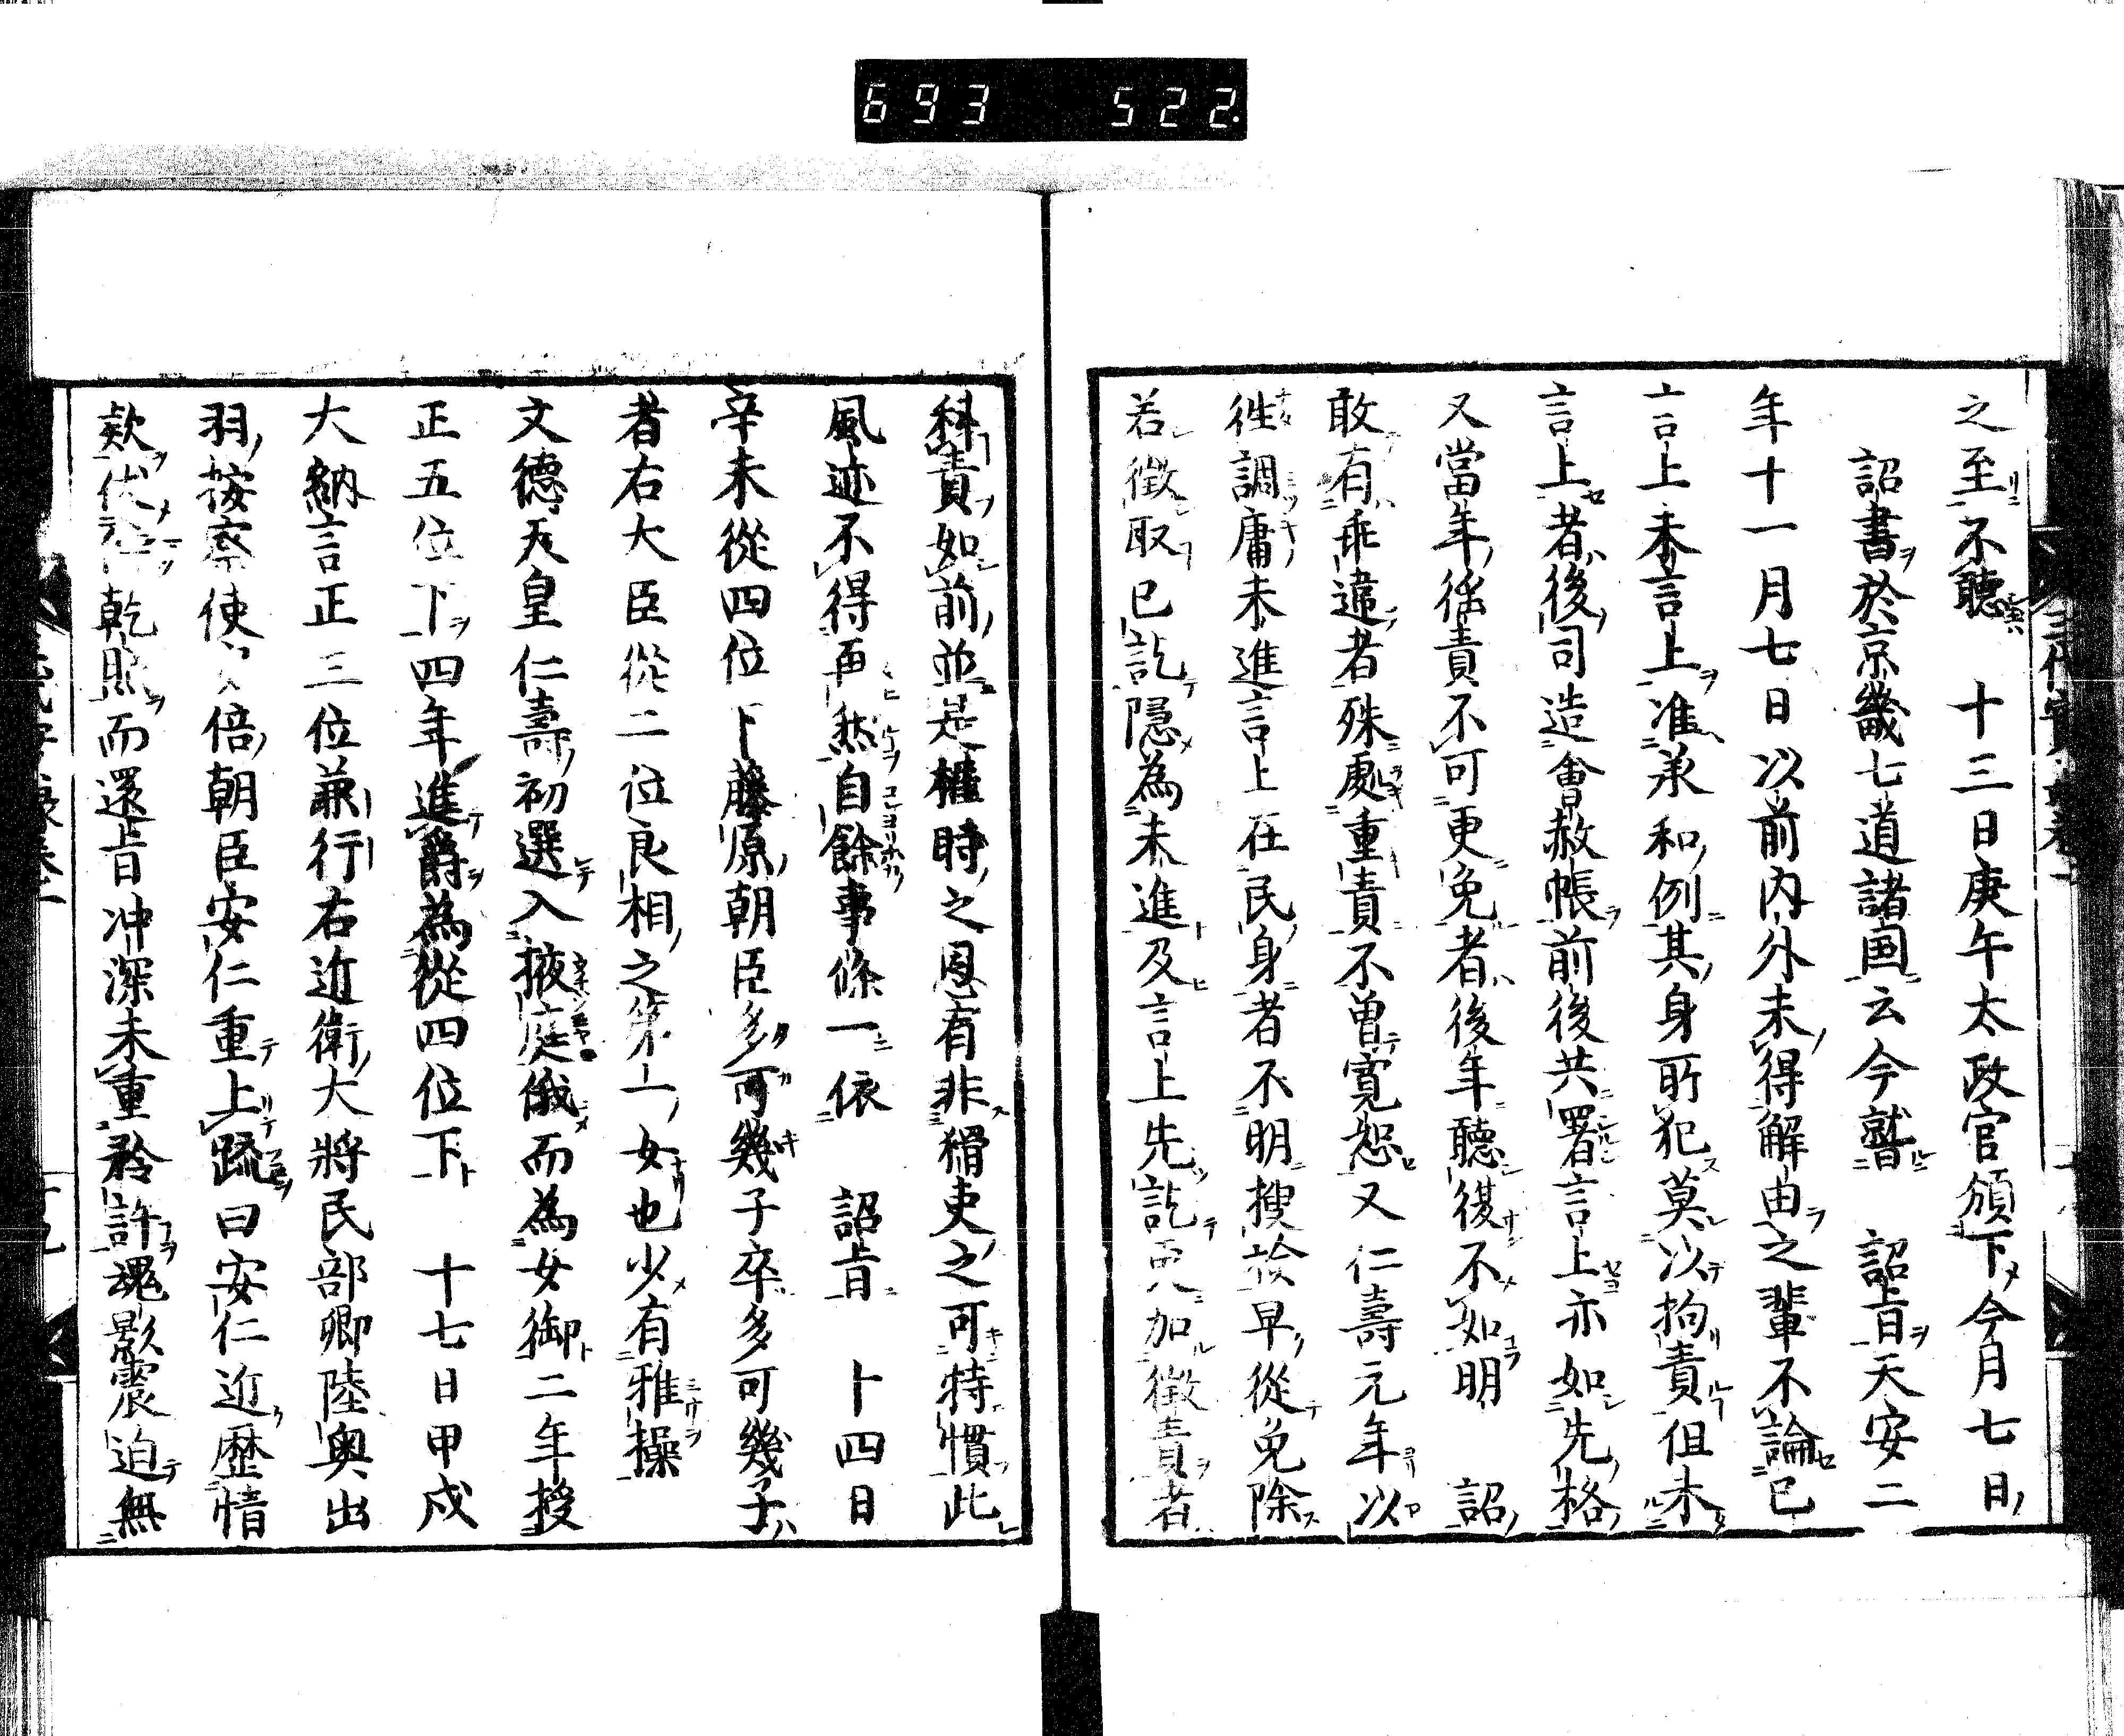 693 522.
之至不聽 十三日庚午太政官頒下今月七日
詔書於京畿七道諸国云今鬵 詔旨天安二
年十一月七日以前内外未得解由之輩不論已
言上未言上准承和例其身所犯莫以拘責但未
言上者後司造會赦帳前後共署言上亦如先格
又當年徭責不可更免者後年聽復不如明 詔
敢有乖違者殊處重責不曽寛恕又仁壽元年以
徃調庸未進言上在民身者不明搜撿早從免除
若徴取已訖隠為未進及言上先訖更加徴責者
科責如前並是權時之恩有非猾吏之可特慣此
風迹不得再然自餘事條一依 詔旨 十四日
辛未從四位下藤原朝臣多可幾子卒多可幾子
者右大臣從二位良相之第一女也少有雅操
文德天皇仁壽初選入掖庭俄而為女御二年授
正五位下四年進爵為從四位下 十七日甲戌
大納言正三位兼行右近衛大將民部卿陸奥出
羽按察使安倍朝臣安仁重上疏曰安仁近歴情
欵伏 乾照而還旨冲深未重矜許魂影震迫無